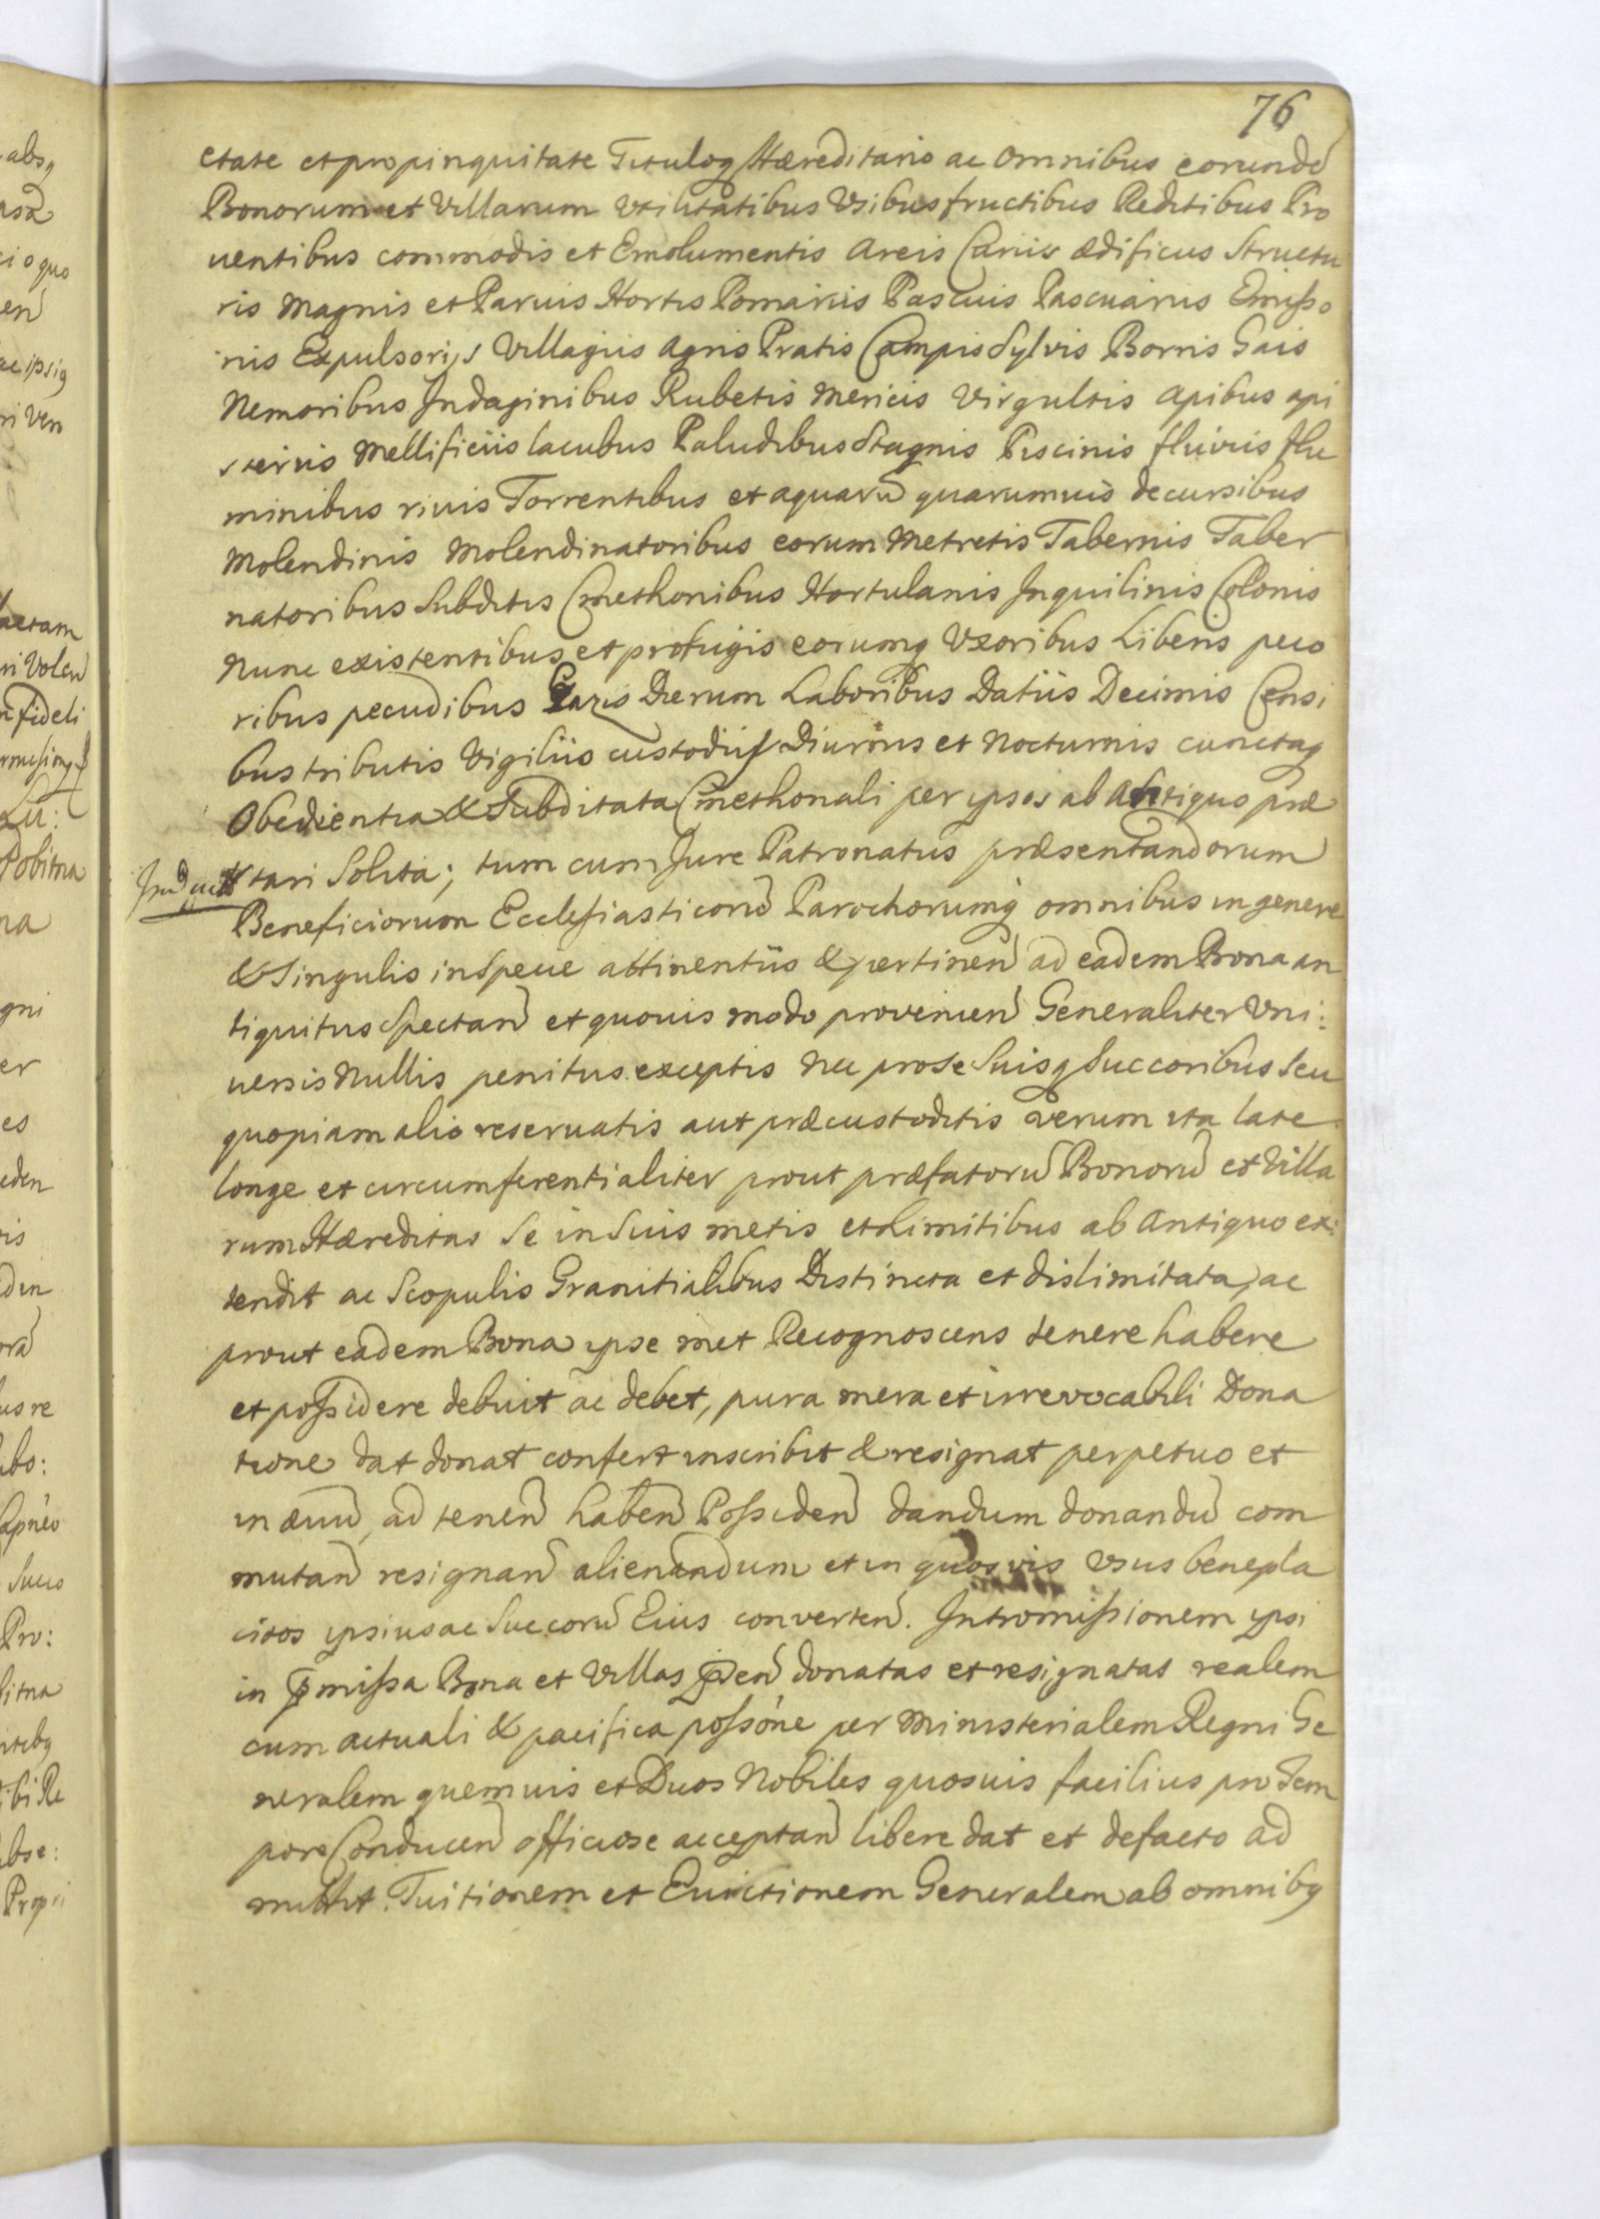 76
etate et propinquitate Tituloq Hæreditario ac omnibus eorundē
Bonorum et Villarum Vtilitatibus Vsibus fructibus Reditibus Pro
uentibus commodis et Emolumentis Areis Curiis ædificiis Structu
ris Magnis et Paruis Hortis Pomariis Pascuis Pascuariis Emisso
riis Expulsoriis Villagiis Agris Pratis Campis Sylvis Borris Gais
Nemoribus Indaginibus Rubetis Mericis Virgultis Apibus api
steriis Mellificiis lacubus Paludibus Stagnis Piscinis fluviis flu
minibus rivis Torrentibus et aquarū quarumuis decursibus
Molendinis Molendinatoribus eorum Metretis Tabernis Taber
natoribus Subditis Cmethonibus Hortulanis Inquilinis Colonis
Nunc existentibus et profugis eorumq Vxoribus Liberis peco
ribus pecudibus Dierum Laboribus Datiis Decimis Censi
bus tributis Vigiliis custodiis Diurnis et Nocturnis cunctaq
Obedientia & Subditata Cmethonali per ipsos ab Antiquo præ
stari Solita; tum cum Jure Patronatus præsentandorum
Beneficiorum Ecclesiasticorū Parochorumq omnibus in genere
& Singulis in Specie attinentiis & pertinen̄ ad eadem Bona an
tiquitus Spectan̄ et quouis modo provenien̄ Generaliter Vni:
uersis Nullis penitus exceptis Nec pro se Suisq Succoribus Seu
quopiam alio reservatis aut præcustoditis verum ita late
longe et circumferentialiter prout præfatorū Bonorū et Villa
rum Hæreditas Se in Suis metis et Limitibus ab Antiquo ex:
tendit ac Scopulis Granitialibus Distincta et dislimitata, ac
prout eadem Bona ipse met Recognoscens tenere habere
et possidere debuit ac debet, pura mera et irrevocabili Dona
tione dat donat confert inscribit & resignat perpetuo et
in ævū, ad tenen̄ haben̄ Possiden̄ dandum donandū com
mutan̄ resignan̄ alienandum et in quosvis Vsus benepla
citos ipsius ac Succorū Eius converten̄. Intromissionem ipsi
in p̄missa Bona et Villas p̄den̄ donatas et resignatas realem
cum actuali & pacifica possōne per Ministerialem Regni Ge
neralem quemuis et Duos Nobiles quosuis facilius pro Tem
pore Conducen̄ officiose acceptan̄ libere dat et defacto ad
mittit. Tuitionem et Euictionem Generalem ab omnibq